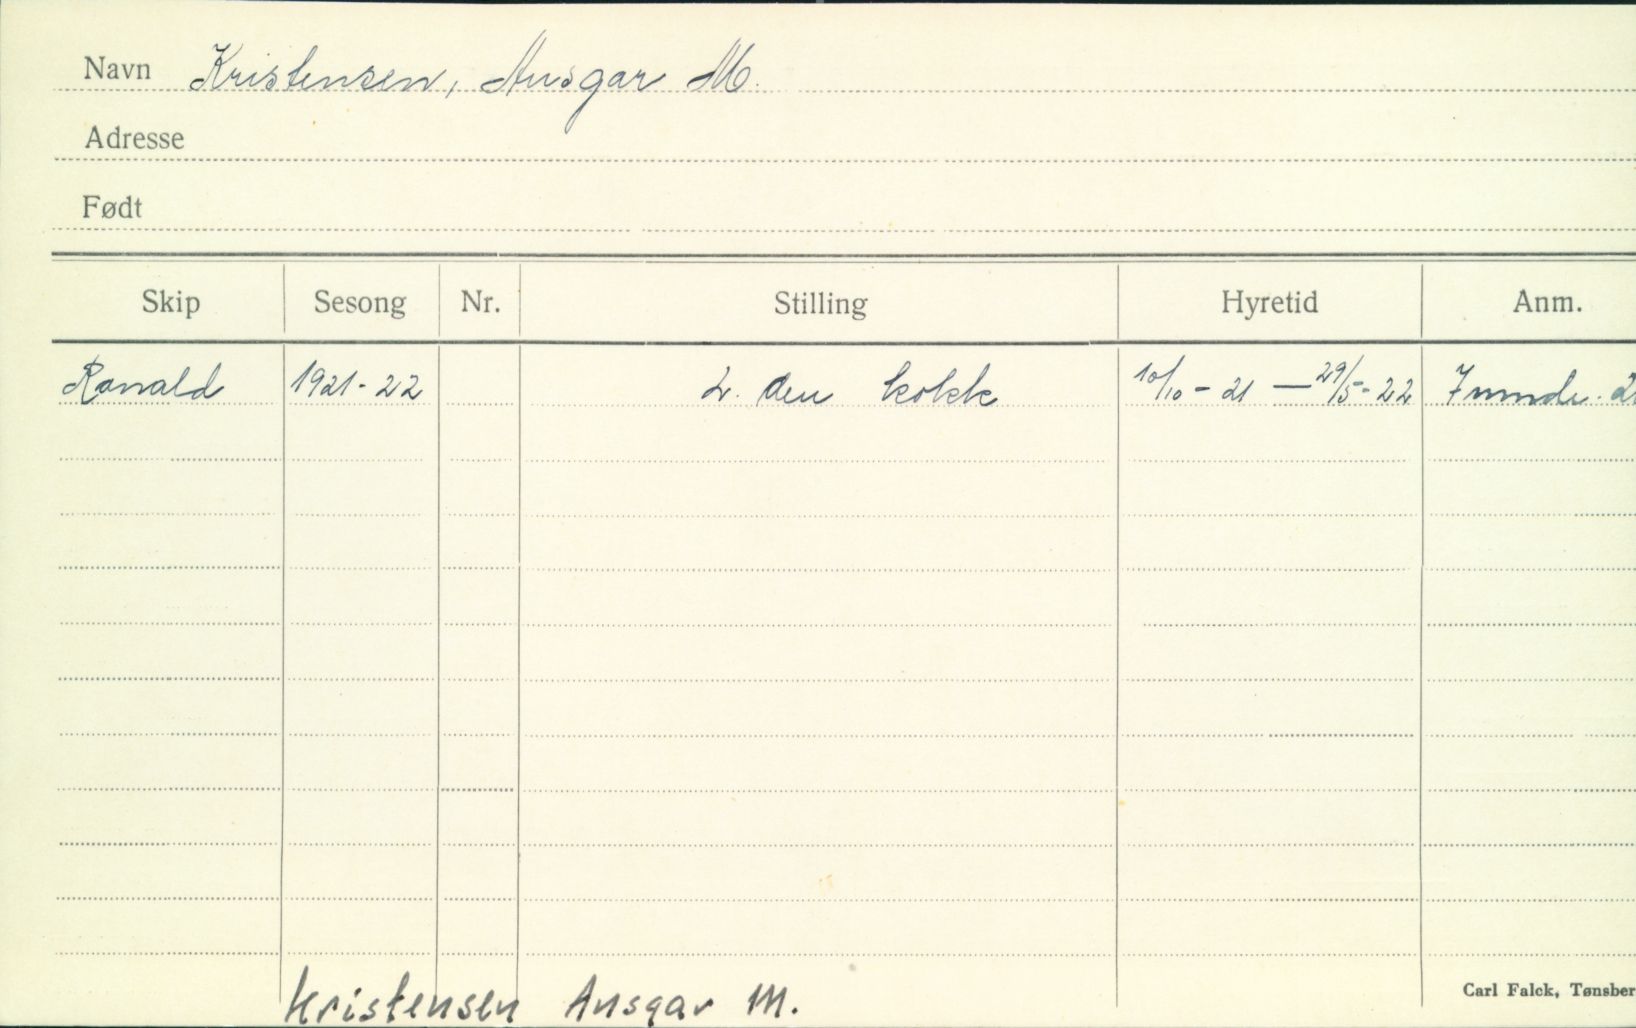 Navn Kristensen, Ansgar M.
Adresse
Født
Skip Sesong Nr. Stilling Hyretid Anm.
Ranald 1921-22 2. den kokk 10/10 - 21 — 29/5 - 22
Kristensen Ansgar M.
Carl Falck, Tønsber